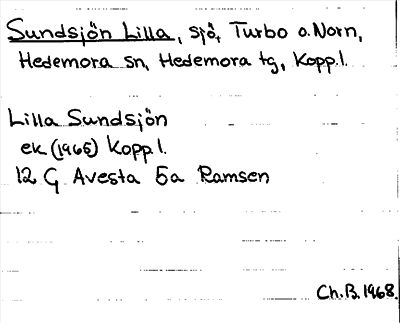 Sundsjön Lilla, sjö, Turbo o. Norn,
Hedemora sn, Hedemora tg, Kopp.l.
Lilla Sundsjön
ek (1965) Kopp l.
12 G Avesta 5a Ramsen
Ch.B.1968.